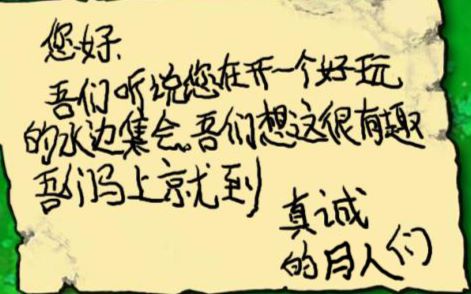 您好.
吾们听说您在开一个好玩
的水边集会。吾们想这很有趣
吾们马上就到
真诚
的月人们